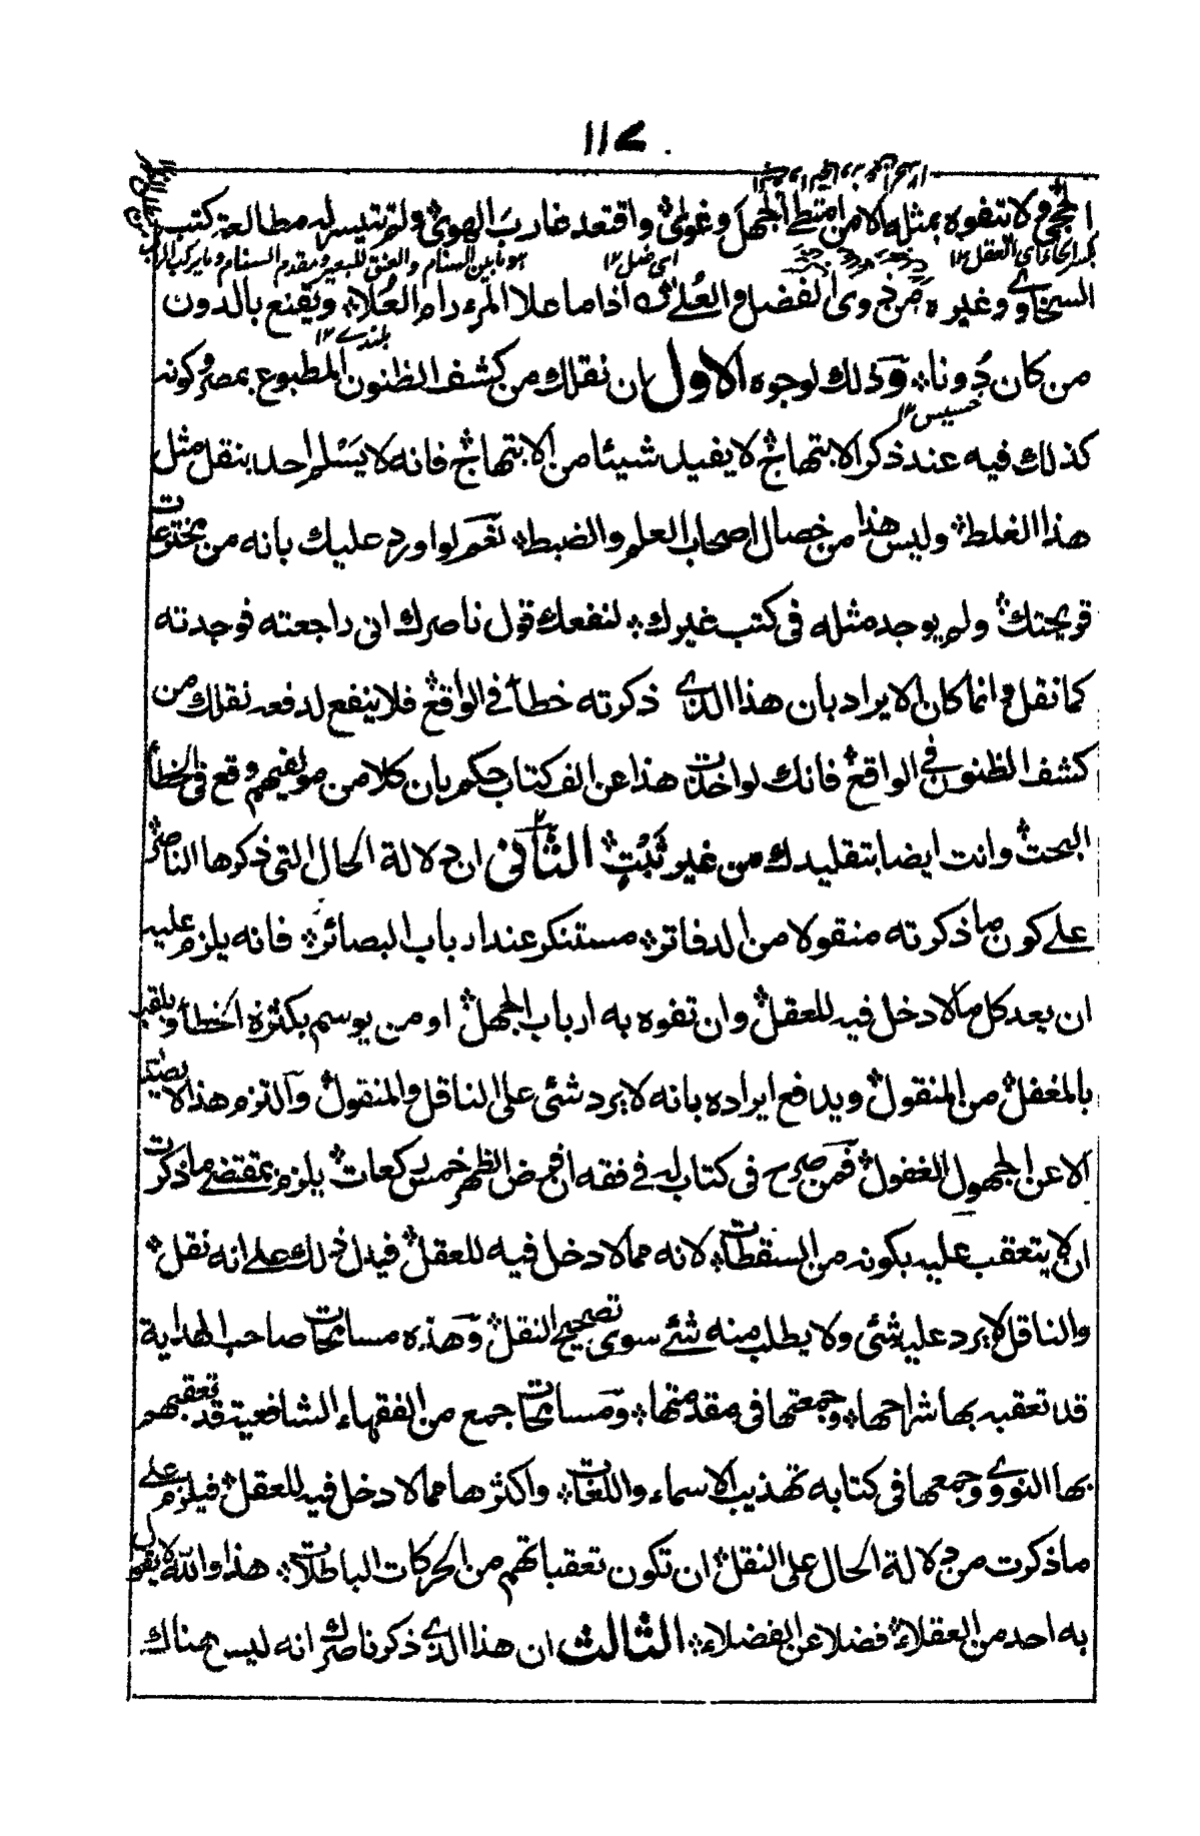 ١١٧
الحجى ولا تتفوه بمثله الا من امتطى الجهل وغوى واقتعد غارب الهوى ولم تتيسر له مطالعة كتب
كذا الى العقل ١٢ اى ضل ١٢ هو ما بين السنام والعنق للبعير ومقدم السنام
السخاوى وغيره من ذوى الفضل والعُلى اذا ما علا المرء رام العُلا ويقنع بالدون
بلندى ١٢
من كان دُونا وذلك لوجوه الاول ان نقلك من كشف الظنون المطبوع بمصر وكونه
خسيس ١٢
كذلك فيه عند ذكر الابتهاج لا يفيد شيئا من الابتهاج فانه لا يَسْلم احد بنقل مثل
هذا الغلط وليس هذا من خصال اصحاب العلم والضبط نعم لو اورد عليك بانه من مخترعات
قريحتك ولم يوجد مثله فى كتب غيرك لنفعك قول ناصرك انى راجعته فوجدته
كما نقل وانما كان الايراد بان هذا الذى ذكرته خطأ فى الواقع فلا ينفع لدفعه نقلك من
كشف الظنون فى الواقع فانك لو اخذت هذا عن الف كتاب حكم بان كلا من مولفيهم وقع فى الخطأ
البحت وانت ايضا بتقليدك من غير ثَبْتٍ الثانى ان دلالة الحال التى ذكرها الناصر
على كون ما ذكرته منقولا من الدفاتر مستنكر عند ارباب البصائر فانه يلزم عليه
ان يعد كل ما لا دخل فيه للعقل وان تفوه به ارباب الجهل او من يوسم بكثرة الخطأ ويلقب
بالمغفل من المنقول ويدافع ايراده بانه لا يرد شئ على الناقل والمنقول والتزم هذا لا يصدر
الا عن الجهول الغفول فمن صرح فى كتاب له فى فقه ان فرض الظهر خمس ركعات يلزم بمقتضى ما ذكرت
ان لا يتعقب عليه بكونه من السقطات لانه مما لا دخل فيه للعقل فيدل ذلك على انه نقل
والناقل لا يرد عليه شئ ولا يطلب منه شئ سوى تصحيح النقل وهذه مسامحات صاحب الهداية
قد تعقبه بها شراحها وجمعتها فى مقدمتها ومسامحات جمع من الفقهاء الشافعية قد تعقبهم
بها النووى وجمعها فى كتابه تهذيب الاسماء واللغات واكثرها مما لا دخل فيه للعقل فيلزم على
ما ذكرت من دلالة الحال على النقل ان تكون تعقباتهم من الحركات الباطلات هذا والله لا يقول
به احد من العقلاء فضلا عن الفضلاء الثالث ان هذا الذى ذكر ناصرك انه ليس هناك